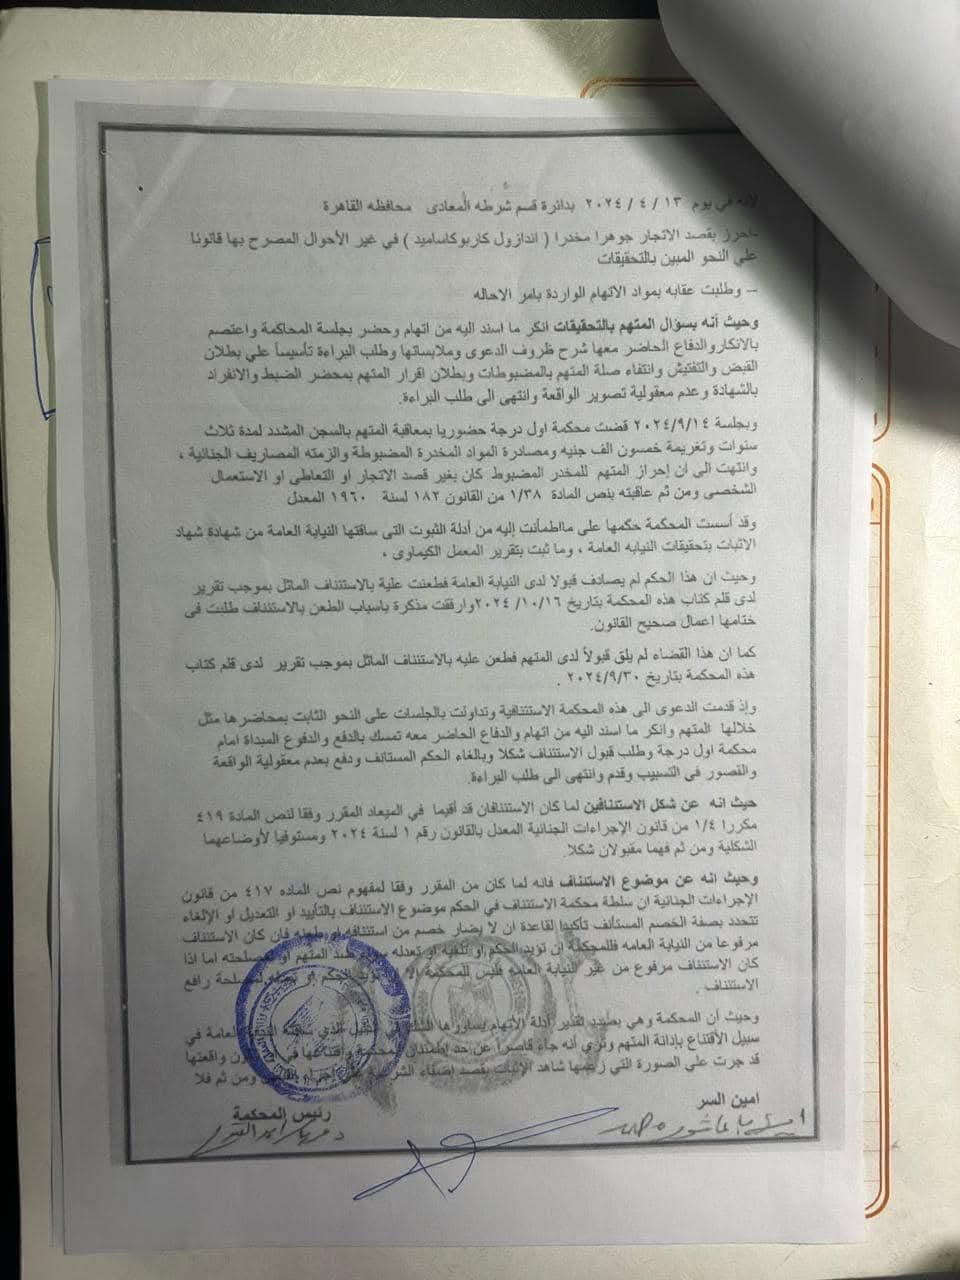 لأنه في يوم ١٣ / ٤ / ٢٠٢٤ بدائرة قسم شرطه المعادى محافظه القاهرة
-احرز بقصد الاتجار جوهرا مخدرا ( اندازول كاربوكساميد ) في غير الأحوال المصرح بها قانونا
علي النحو المبين بالتحقيقات
– وطلبت عقابه بمواد الاتهام الواردة بامر الاحاله
وحيث أنه بسؤال المتهم بالتحقيقات انكر ما اسند اليه من اتهام وحضر بجلسة المحاكمة واعتصم
بالانكاروالدفاع الحاضر معها شرح ظروف الدعوى وملابساتها وطلب البراءة تأسيساً علي بطلان
القبض والتفتيش وانتفاء صلة المتهم بالمضبوطات وبطلان اقرار المتهم بمحضر الضبط والانفراد
بالشهادة وعدم معقولية تصوير الواقعة وانتهى الى طلب البراءة.
وبجلسة ٢٠٢٤/٩/١٤ قضت محكمة اول درجة حضوريا بمعاقبة المتهم بالسجن المشدد لمدة ثلاث
سنوات وتغريمة خمسون الف جنيه ومصادرة المواد المخدرة المضبوطة والزمته المصاريف الجنائية ،
وانتهت الى أن إحراز المتهم للمخدر المضبوط كان بغير قصد الاتجار او التعاطى او الاستعمال
الشخصى ومن ثم عاقبته بنص المادة ١/٣٨ من القانون ١٨٢ لسنة ١٩٦٠ المعدل
وقد أسست المحكمة حكمها على مااطمأنت إليه من أدلة الثبوت التى ساقتها النيابة العامة من شهادة شهاد
الاثبات بتحقيقات النيابه العامة ، وما ثبت بتقرير المعمل الكيماوى ،
وحيث ان هذا الحكم لم يصادف قبولا لدى النيابة العامة فطعنت علية بالاستئناف الماثل بموجب تقرير
لدى قلم كتاب هذه المحكمة بتاريخ ١٦ /١٠/ ٢٠٢٤وارفقت مذكرة باسباب الطعن بالاستئناف طلبت فى
ختامها اعمال صحيح القانون.
كما ان هذا القضاء لم يلق قبولاً لدى المتهم فطعن عليه بالاستئناف الماثل بموجب تقرير لدى قلم كتاب
هذه المحكمة بتاريخ ٢٠٢٤/٩/٣٠ .
وإذ قدمت الدعوى الى هذه المحكمة الاستئنافية وتداولت بالجلسات على النحو الثابت بمحاضرها مثل
خلالها المتهم وانكر ما اسند اليه من اتهام والدفاع الحاضر معه تمسك بالدفع والدفوع المبداة امام
محكمة اول درجة وطلب قبول الاستئناف شكلا وبالغاء الحكم المستائف ودفع بعدم معقولية الواقعة
والقصور فى التسبيب وقدم وانتهى الى طلب البراءة.
حيث انه عن شكل الاستئنافين لما كان الاستئنافان قد أقيما في الميعاد المقرر وفقا لنص المادة ٤١٩
مكررا ١/٤ من قانون الإجراءات الجنائية المعدل بالقانون رقم ١ لسنة ٢٠٢٤ ومستوفيا لأوضاعهما
الشكلية ومن ثم فهما مقبولان شكلا.
وحيث انه عن موضوع الاستئناف فانه لما كان من المقرر وفقا لمفهوم نص الماده ٤١٧ من قانون
الإجراءات الجنائية ان سلطة محكمة الاستئناف في الحكم موضوع الاستئناف بالتأييد او التعديل او الإلغاء
تتحدد بصفة الخصم المستأنف تأكيدا لقاعدة ان لا يضار خصم من استئنافه او طعنه فإن كان الاستئناف
مرفوعا من النيابة العامه فللمحكمة ان تؤيد الحكم او تلغيه او تعدله سواء ضد المتهم او لمصلحته اما اذا
كان الاستئناف مرفوع من غير النيابة العامه فليس للمحكمة الا ان تؤيد الحكم او تعدله لمصلحة رافع
الاستئناف .
وحيث أن المحكمة وهي بصدد تقدير أدلة الاتهام يساورها الشك في الدليل الذي ساقته النيابة العامة في
سبيل الأقتناع بإدانة المتهم وتري أنه جاء قاصراً عن حد اطمئنان المحكمة واقتناعها في أن تكون واقعتها
قد جرت علي الصورة التي زعمها شاهد الإثبات بقصد اضفاء الشرعية علي اجراء القبض ومن ثم فلا
امين السر
رئيس المحكمة